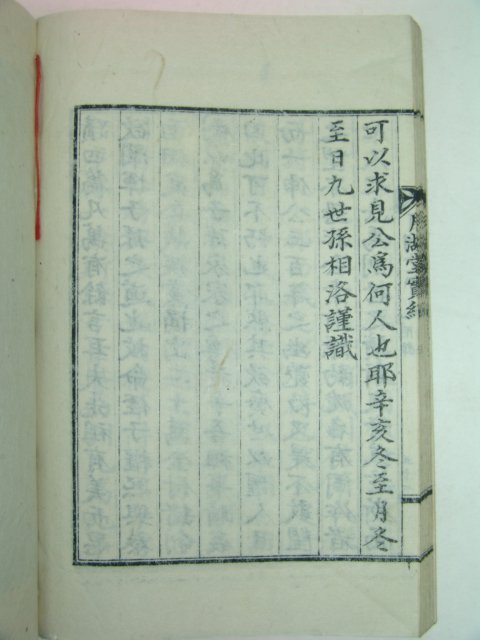 可以求見公爲何人也耶辛亥冬至月冬
至日九世孫相洛謹識
湖堂實紀